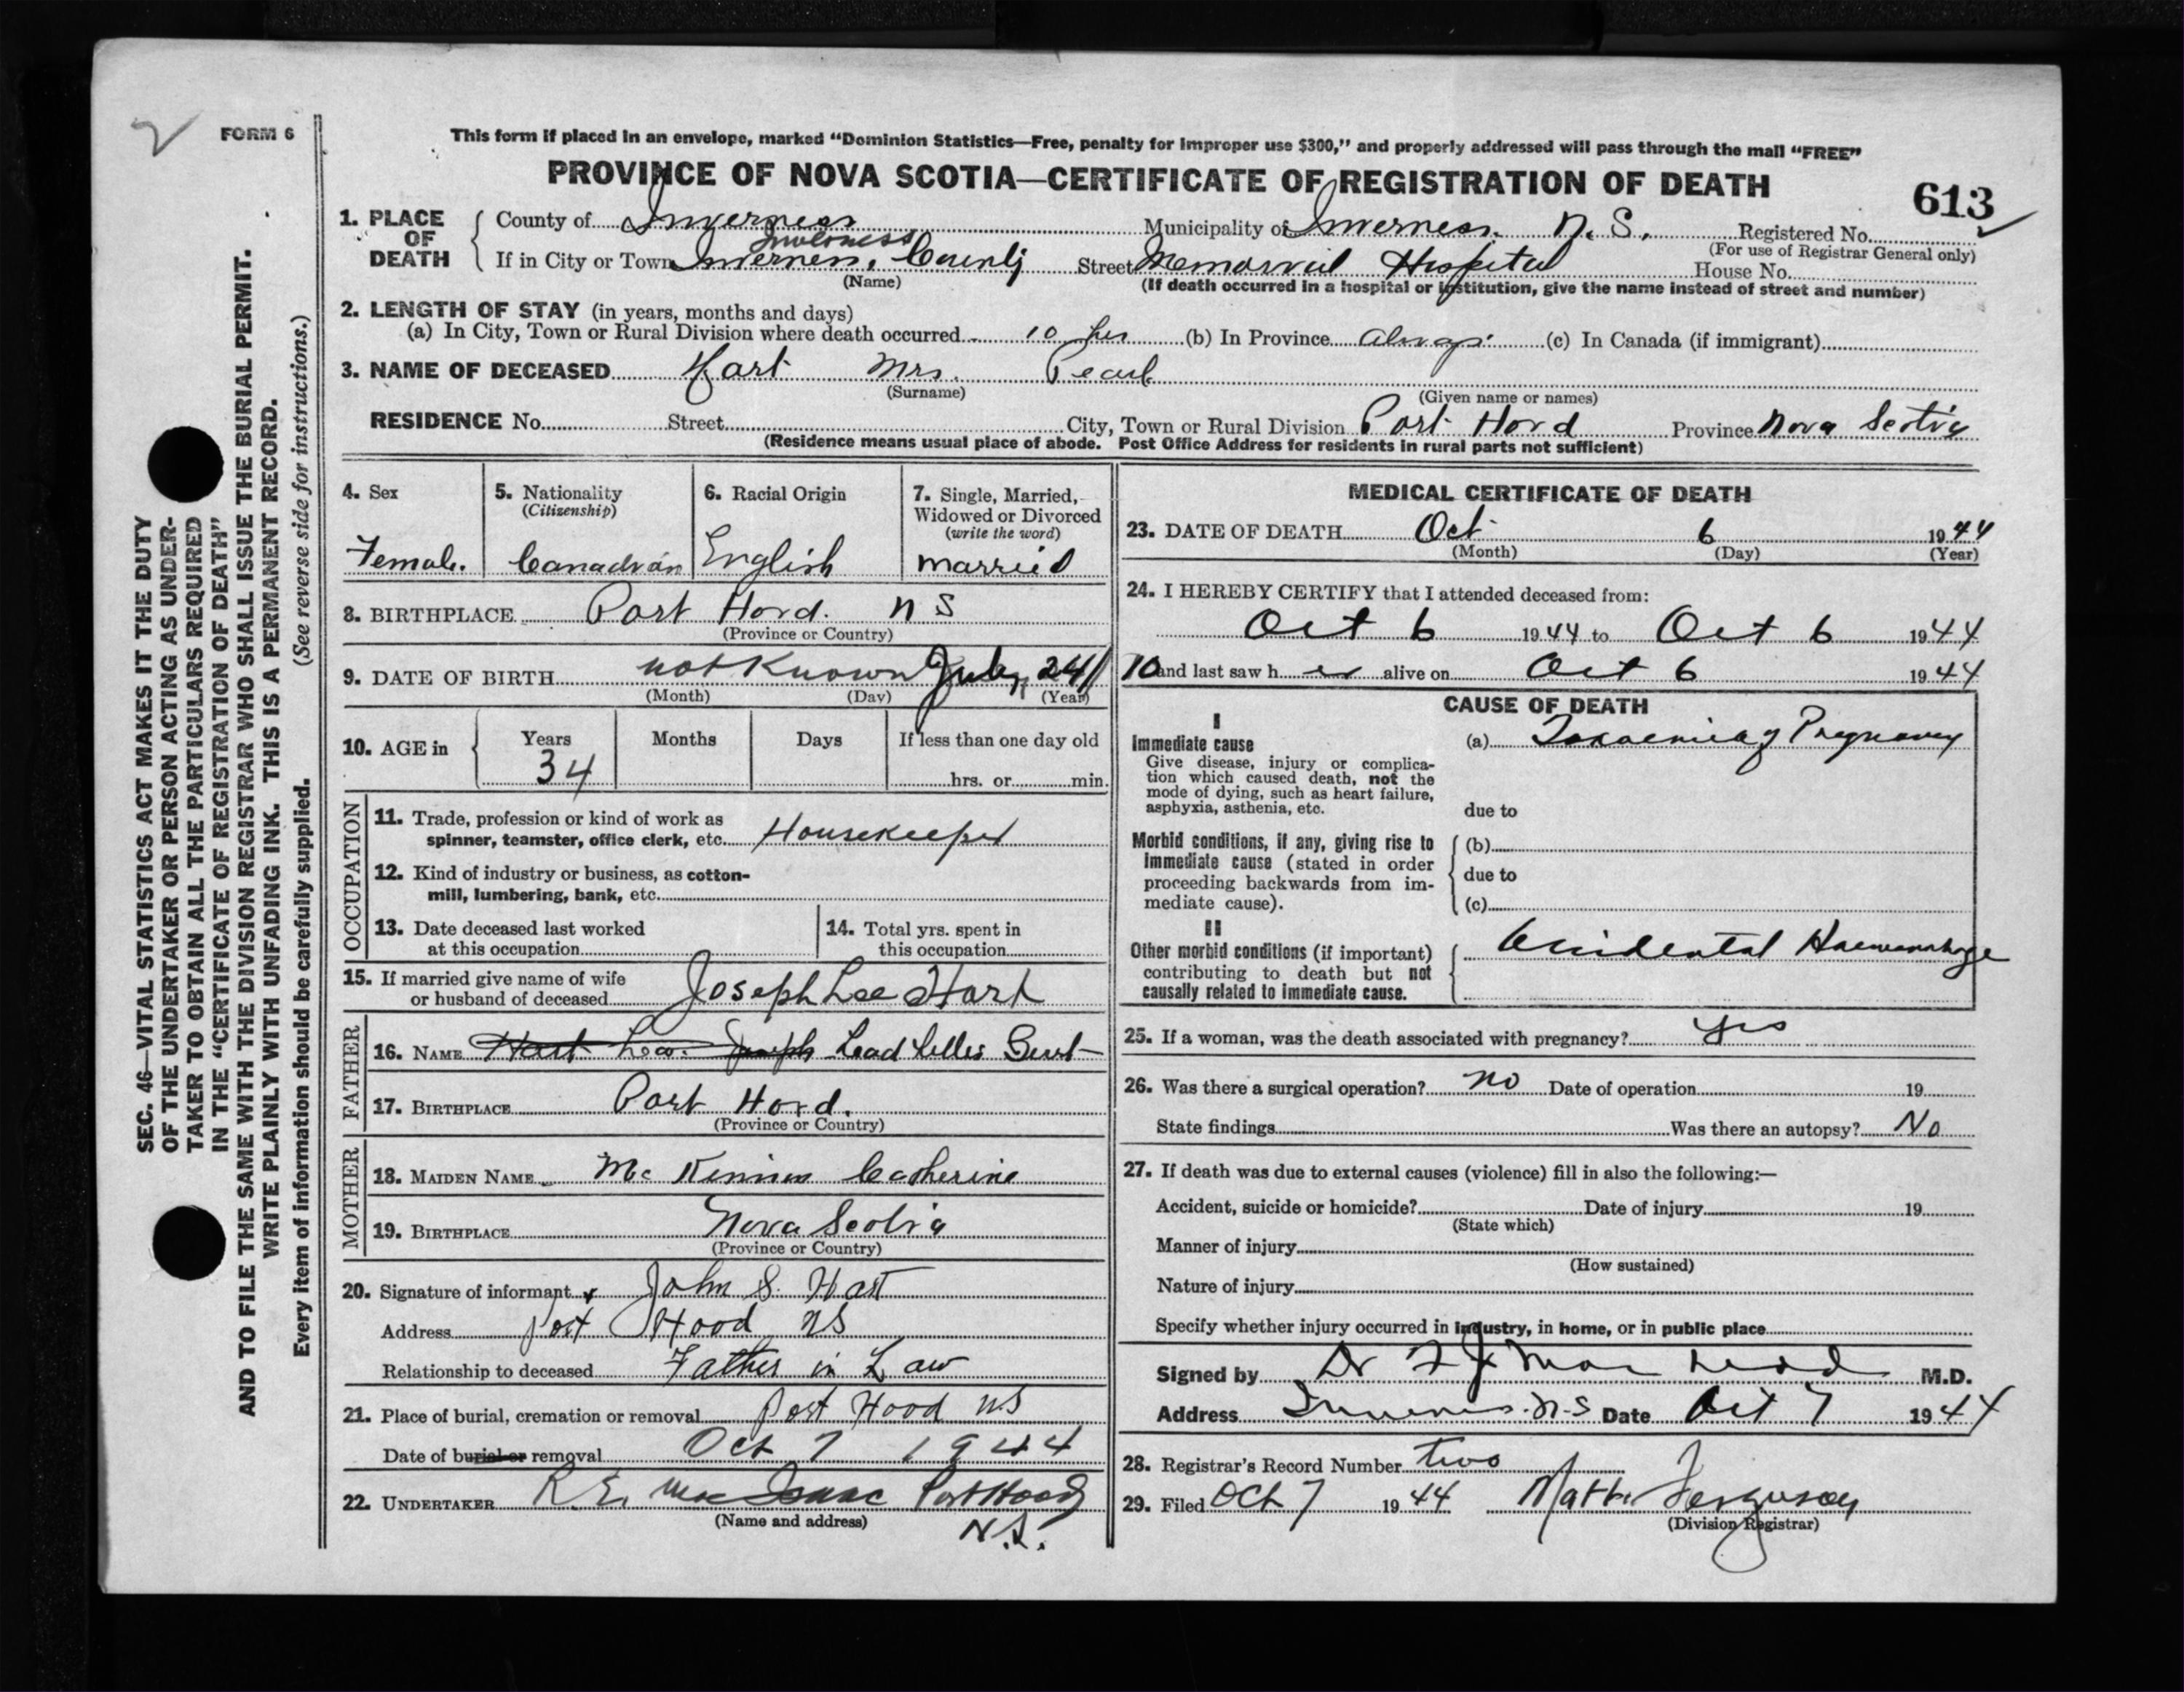 2
FORM 6
This form if placed in an envelope, marked “Dominion Statistics—Free, penalty for improper use $300,” and properly addressed will pass through the mail “FREE”
PROVINCE OF NOVA SCOTIA—CERTIFICATE OF REGISTRATION OF DEATH
613
1. PLACE OF DEATH
County of Inverness Municipality of Inverness. N. S. Registered No.
(For use of Registrar General only)
Inverness
If in City or Town Inverness, County Street Memorial Hospital House No.
(Name) (If death occurred in a hospital or institution, give the name instead of street and number)
2. LENGTH OF STAY (in years, months and days)
(a) In City, Town or Rural Division where death occurred 10 hrs (b) In Province always (c) In Canada (if immigrant)
3. NAME OF DECEASED Hart Mrs. Pearl
(Surname) (Given name or names)
RESIDENCE No. Street City, Town or Rural Division Port Hood Province Nova Scotia
(Residence means usual place of abode. Post Office Address for residents in rural parts not sufficient)
4. Sex
Female.
5. Nationality
(Citizenship)
Canadian
6. Racial Origin
English
7. Single, Married, Widowed or Divorced
(write the word)
married
8. BIRTHPLACE Port Hood. N S
(Province or Country)
9. DATE OF BIRTH not Known July, 24/10
(Month) (Day) (Year)
10. AGE in
Years Months Days If less than one day old
34 hrs. or min.
OCCUPATION
11. Trade, profession or kind of work as
spinner, teamster, office clerk, etc. Housekeeper
12. Kind of industry or business, as cotton-
mill, lumbering, bank, etc.
13. Date deceased last worked
at this occupation
14. Total yrs. spent in
this occupation
15. If married give name of wife
or husband of deceased Joseph Lee Hart
FATHER
16. NAME Hart Lee. Joseph
17. BIRTHPLACE Port Hood.
(Province or Country)
MOTHER
18. MAIDEN NAME Mc Catherine
19. BIRTHPLACE Nova Scotia
(Province or Country)
20. Signature of informant John S. Hart
Address Port Hood NS
Relationship to deceased Father in Law
21. Place of burial, cremation or removal Port Hood NS
Date of burial or removal Oct 7 1944
22. UNDERTAKER R.E. MacIsaac Port Hood
(Name and address) N.S.
MEDICAL CERTIFICATE OF DEATH
23. DATE OF DEATH Oct 6 1944
(Month) (Day) (Year)
24. I HEREBY CERTIFY that I attended deceased from:
Oct 6 1944 to Oct 6 1944
and last saw her alive on Oct 6 1944
CAUSE OF DEATH
I
Immediate cause
Give disease, injury or complica-
tion which caused death, not the
mode of dying, such as heart failure,
asphyxia, asthenia, etc.
(a) Toxaemia of Pregnancy
due to
Morbid conditions, if any, giving rise to
immediate cause (stated in order
proceeding backwards from im-
mediate cause).
(b)
due to
(c)
II
Other morbid conditions (if important)
contributing to death but not
causally related to immediate cause.
Accidental Haemorrhage
25. If a woman, was the death associated with pregnancy? yes
26. Was there a surgical operation? no Date of operation 19
State findings Was there an autopsy? No
27. If death was due to external causes (violence) fill in also the following:—
Accident, suicide or homicide? Date of injury 19
(State which)
Manner of injury
(How sustained)
Nature of injury
Specify whether injury occurred in industry, in home, or in public place
Signed by Dr Mac Leod M.D.
Address Inverness. N-S Date Oct 7 1944
28. Registrar's Record Number two
29. Filed Oct 7 1944 Matt. Ferguson
(Division Registrar)
SEC. 46—VITAL STATISTICS ACT MAKES IT THE DUTY
OF THE UNDERTAKER OR PERSON ACTING AS UNDER-
TAKER TO OBTAIN ALL THE PARTICULARS REQUIRED
IN THE “CERTIFICATE OF REGISTRATION OF DEATH”
AND TO FILE THE SAME WITH THE DIVISION REGISTRAR WHO SHALL ISSUE THE BURIAL PERMIT.
WRITE PLAINLY WITH UNFADING INK. THIS IS A PERMANENT RECORD.
Every item of information should be carefully supplied. (See reverse side for instructions.)